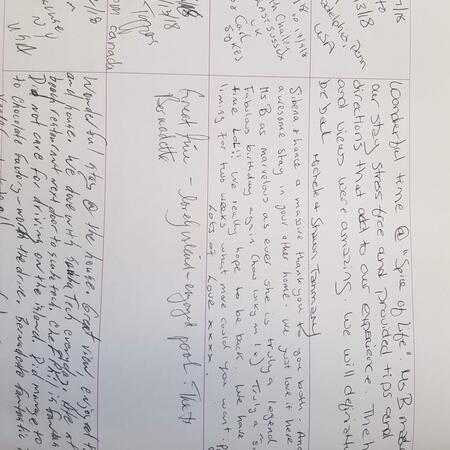 1/18
to
13/18
Philadelphia, Penn
USA
Wonderful time @ "Spice of Life". Ms B made
our stay stress free and provided tips and
directions that add to our experience. The h
and views were amazing. We will definite
be back
Michele & Shawn Tammany
th Chailey
East Sussex
UK
Carl
Sykes
Sibena & Lance a massive thankyou to you both. An
awesome stay in your other home. We just love it here
Ms B as marvelous as ever she is truly a legend
Fabulous birthday again Truly a "S
time Lol!! We really hope to be back. We have
liming for two weeks what more could you want.
Lots of Love xxxx.
/18
13/18
om canada
Great time - lovely island - enjoyed pool. Thx to
Bernadette
/18
acuse
NY
USA
Wonderful stay @ the house. Great view, enjoyed t
and house. We dove with Scuba Tech everyday. Ate at
beach restaurant next door to scuba tech. Chef Phil is fantas
Did not care for driving on the island. Did manage to
to Chocolate Factory - worth the drive. Bernadette fantastic